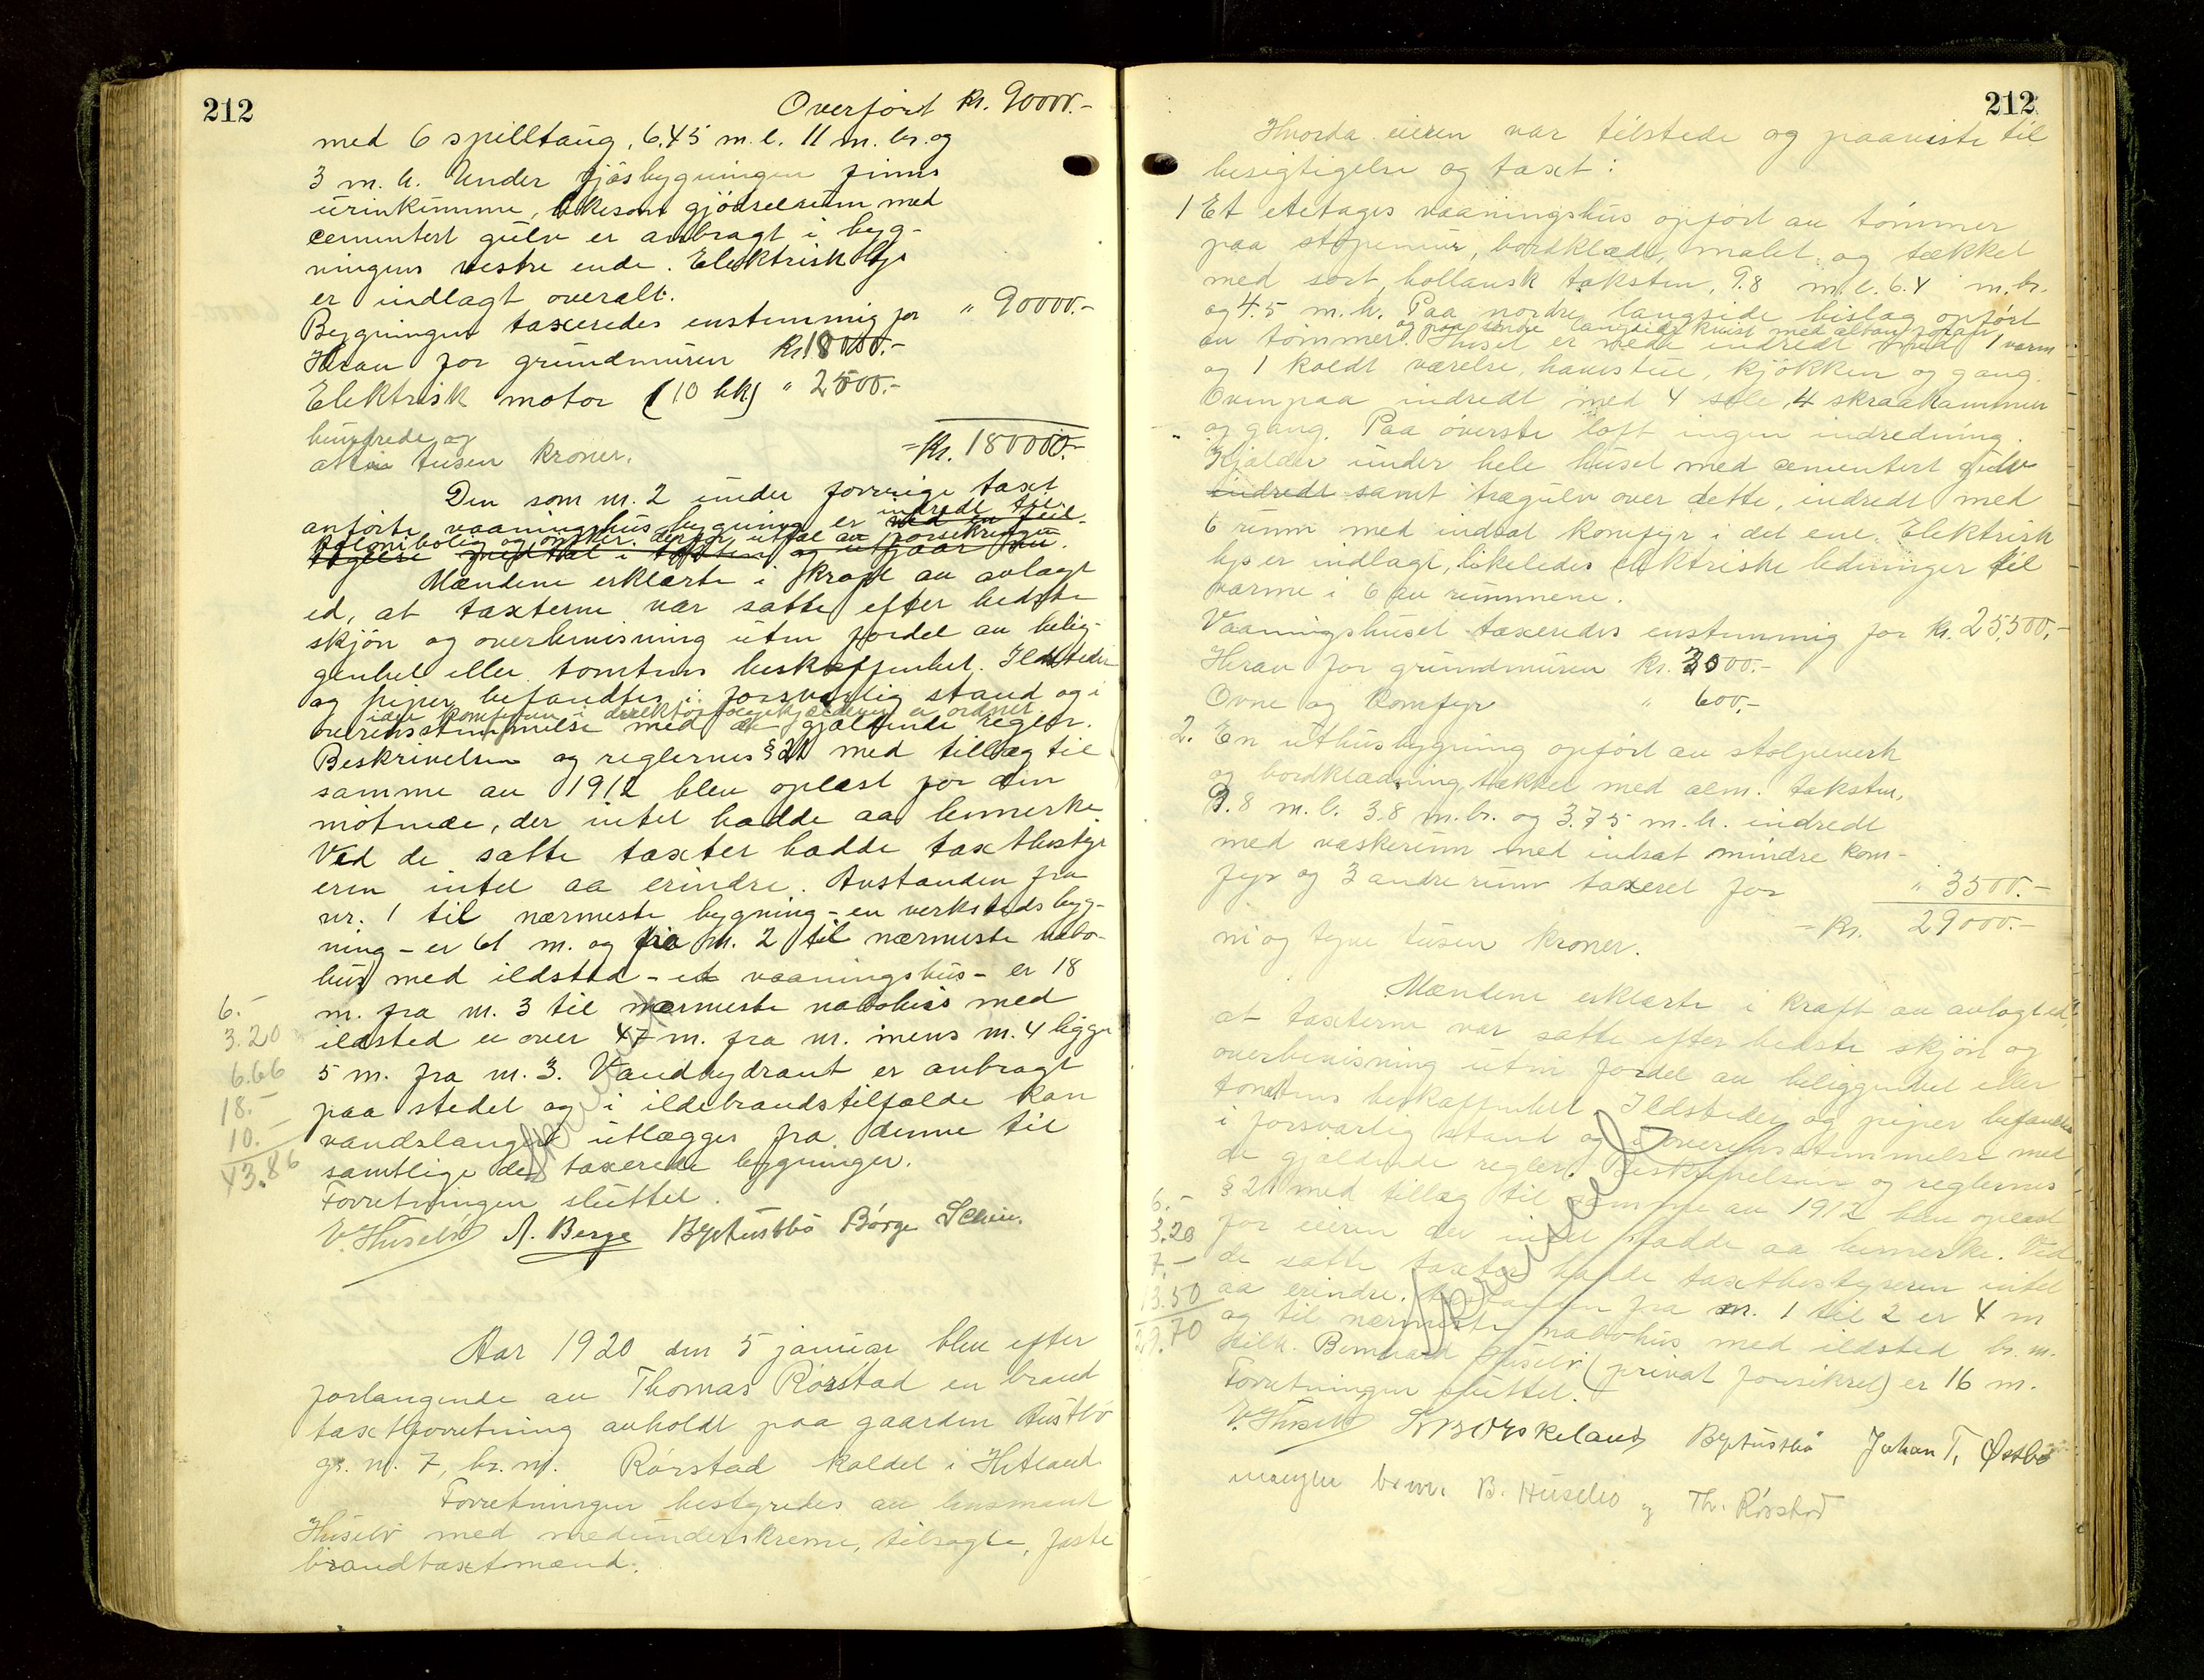 212
Overført kr. 90000.-
med 6 spilltaug, 6,45 m. l. 11 m. br. og
3 m. h. Under fjösbygningen finns
urinkumme, likesom gjödselrum med
cementert gulv er anbragt i byg-
ningens vestre ende. Elektrisk lys
er indlagt overalt.
Bygningen taxeredes enstemmig for " 90000.-
Herav for grundmuren kr. 18000.-
Elektrisk motor (10 hk) " 2500.-
= kr. 180000.-
hundrede og
atti tusen kroner.
Den som nr. 2 under forrige taxt
anførte vaaningshusbygning er indredt til
Mændene erklærte i kraft av avlagt
ed, at taxterne var satte efter bedste
skjön og overbevisning uten fordel av belig-
genhet eller tomtens beskaffenhet. Ildsteder
og piper befandtes i forsvarlig stand og i
overensstemmelse med de gjældende regler.
Beskrivelsen og reglernes § 21 med tillæg til
samme av 1912 blev oplæst for den
møtende, der intet hadde aa bemerke.
Ved de satte taxter hadde taxtbesty-
eren intet aa erindre. Avstanden fra
nr. 1 til nærmeste bygning - en verkstedsbyg-
ning - er 61 m. og fra nr. 2 til nærmeste nabo-
hus med ildsted - et vaaningshus - er 18
m. fra nr. 3 til nærmeste nabohus med
ildsted er over 47 m. fra nr. mens nr. 4 ligger
5 m. fra nr. 3. Vandhydrant er anbragt
paa stedet og i ildebrandstilfælde kan
vandslanger utlægges fra denne til
samtlige de taxerede bygninger.
Forretningen sluttet.
6.-
3.20
6.66
18.-
10.-
43.86
V. Huselö A. Berge B. Austbö Börge
Aar 1920 den 5 januar blev efter
forlangende av Thomas Rörstad en brand
taxtforretning avholdt paa gaarden Austbö
gr. nr. 7, br. nr. Rörstad kaldet i Hetland.
Forretningen bestyredes av lensmand
Huselö med medunderskrevne, tilsagte, faste
brandtaxtmænd.
212
Hvorda eieren var tilstede og paaviste til
besigtigelse og taxt:
1 Et etetages vaaningshus opført av tömmer
paa stöpemur, bordklædt, malet og tækket
med sort, hollansk taksten, 9.8 m. l. 6.4 m. br.
og 4.5 m. h. Paa nordre langside bislag opfört
og paa söndre langside kvist med altan foran
av tömmer. Huset er nede indredt med 1 varm
og 1 koldt værelse, havestue, kjökken og gang.
Ovenpaa indredt med 4 sole, 4 skraakammer
og gang. Paa överste loft ingen indredning.
Kjælder under hele huset med cementert gulv
indredt samt trægulv over dette, indredt med
6 rum med indsat komfyr i det ene. Elektrisk
lys er indlagt, likeledes elektriske ledninger til
varme i 6 av rummene.
Vaaningshuset taxeredes enstemmig for kr. 25,500.-
Herav for grundmuren kr. 3000.-
Ovne og komfyr " 600.-
2. En uthusbygning opfört av stolpeverk
og bordklædning tækket med alm. taksten,
9.8 m. l. 3.8 m. br. og 3.75 m. h. indredt
med vaskerum med indsat mindre kom-
fyr og 3 andre rum taxeret for " 3500.-
= kr. 29000.-
ni og tyve tusen kroner.
Mændene erklærte i kraft av avlagt ed,
at taxterne var satte efter bedste skjön og
overbevisning uten fordel av beliggenhet eller
tomtens beskaffenhet. Ildsteder og piper befandtes
i forsvarlig stand og i overensstemmelse med
de gjældende regler. Beskrivelsen og reglernes
§ 21 med tillæg til samme av 1912 blev oplæst
for eieren der intet hadde aa bemerke. Ved
de satte taxter hadde taxtbestyreren intet
aa erindre. Avstanden fra nr. 1 til 2 er 4 m
og til nærmeste nabohus med ildsted br. nr.
tilh. Bernhard Huselö (privat forsikret) er 16 m.
Forretningen sluttet.
6.-
3.20
7.-
13.50
29.70
V. Huselö B. Austbö Johan T. Østbö
mangler br.nr. B. Huselö og Th. Rörstad